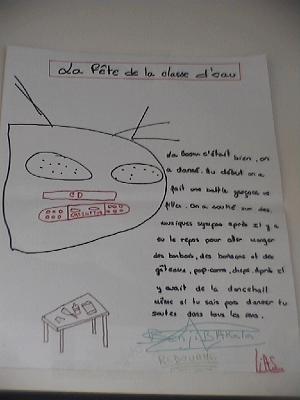 La fête de la classe d'eau
La Boom c'était bien, on
a dansé. Au début on a
fait une battle garçons vs
filles. On a sauté sur des
musiques sympas après il y a
eu le repos pour aller manger
des bonbons, des boissons et des
gâteaux, pop-corns, chips. Après il
y avait de la dancehall
même si tu sais pas danser tu
sautes dans tous les sens.
CD
cassette
Benji
REDOUANE
LiAS